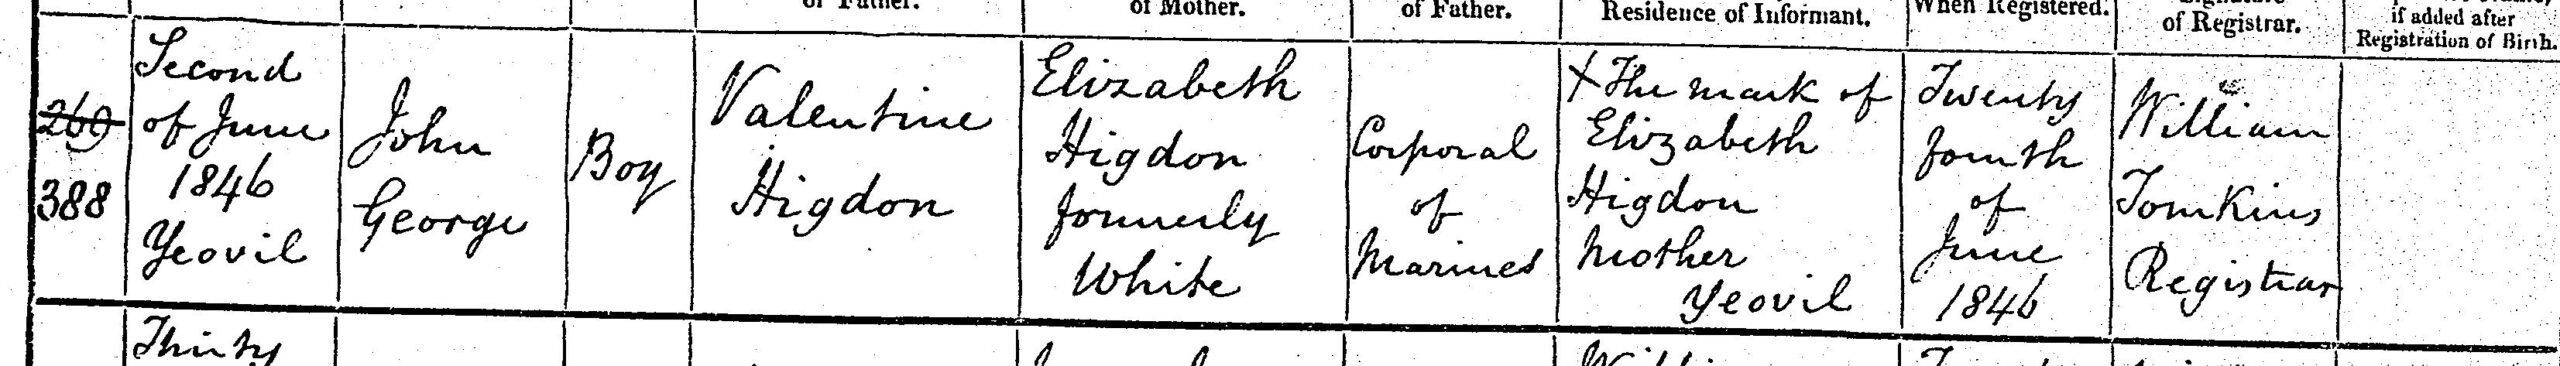 of Father.
of Mother.
of Father.
Residence of Informant.
When Registered.
of Registrar.
if added after
Registration of Birth.
269
388
Second
of June
1846
Yeovil
John
George
Boy
Valentine
Higdon
Elizabeth
Higdon
formerly
White
Corporal
of
Marines
X The mark of
Elizabeth
Higdon
Mother
Yeovil
Twenty
fourth
of
June
1846
William
Tomkins
Registrar
Thirty